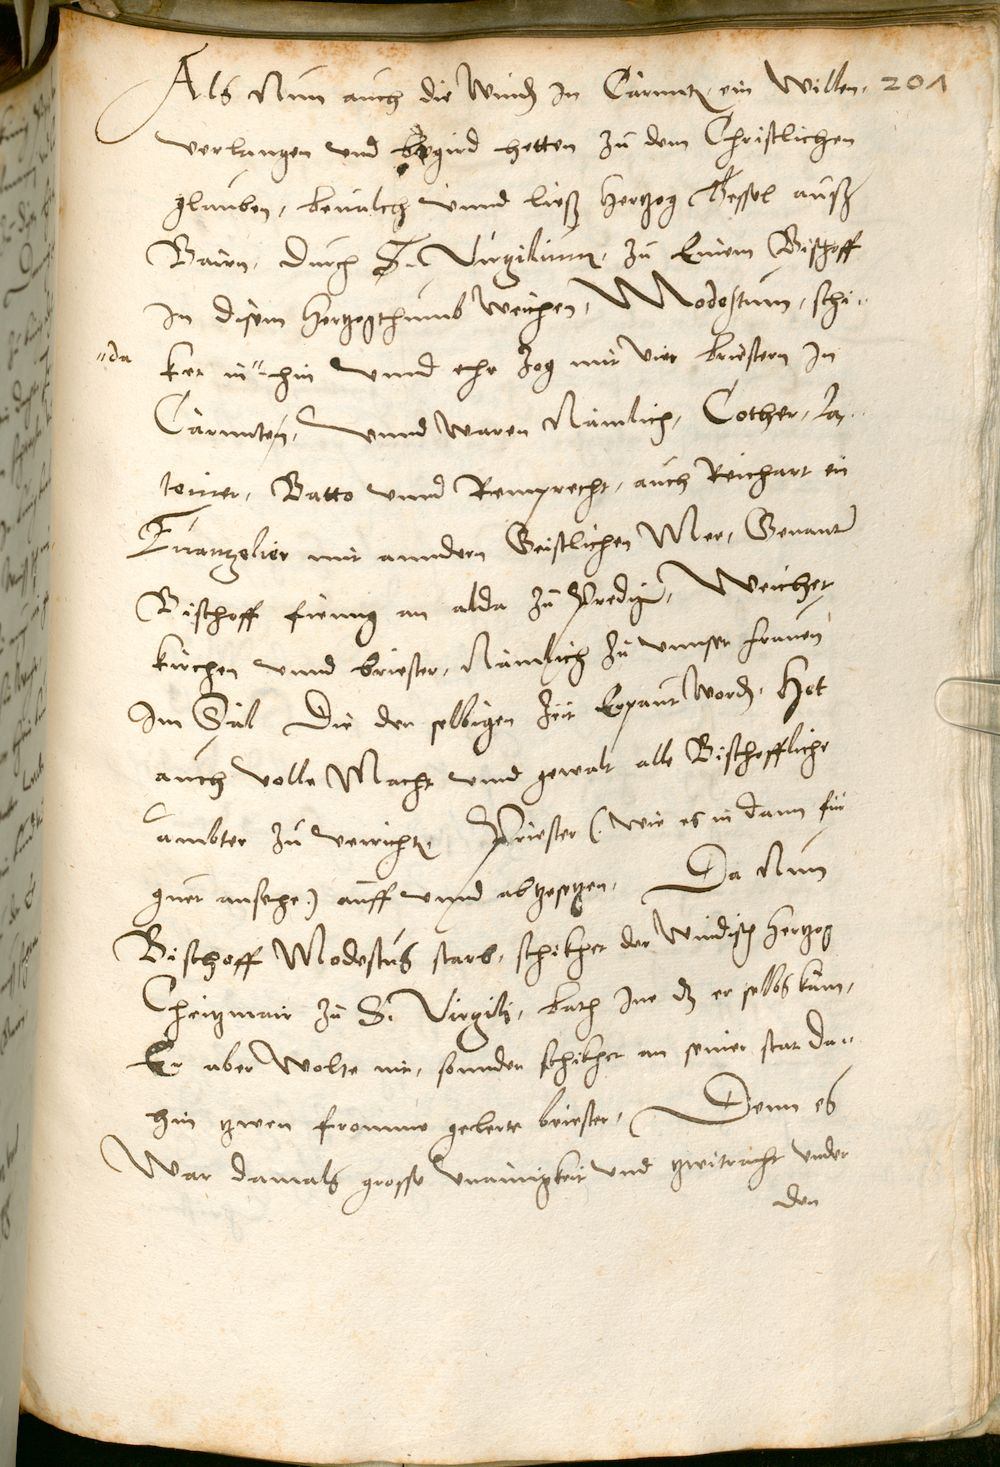 Als Nun auch die Windn In Cärnntn ein Willen, 201
verlangen und begird hetten zu dem Christlichen
glauben, bevalch unnd ließ Hertzog Thessel auß
Bairn, durch S. Virgilium, zu Einem Bischoff
In disem Hertzogthumb Weichen, Modestum, schi-
"da
ket in "hin unnd ehr Zog mit vier briestern In
Cärnnten, unnd waren Nämlich, Cother, La-
teiner, Batto unnd Remprecht, auch Reichart ein
Evangelier mit anndern Geistlichen Mer, Genanter
Bischoff fieng an alda zu Predign, Weichet
kirchen unnd briester, Nämlich zu unnser frauen
Im Säl Die der selbigen Zeit Erpaut wordn. Het
auch volle Macht unnd gewalt alle Bischoffliche
ämbter zu verrichtn, Priester (: wie es in dann für
guet ansehe:) auff unnd abzesetzen, Da Nun
Bischoff Modestus starb, schikhet der Windisch Hertzog
Cheitzmair zu S. Virgilj, bath Ine dz er selbs käm,
Er aber Wolte nit, sonnder schikhet an seiner stat da-
hin zwen fromme gelerte briester, Denn es
War damals grosse unainigkeit und zwitracht under
den